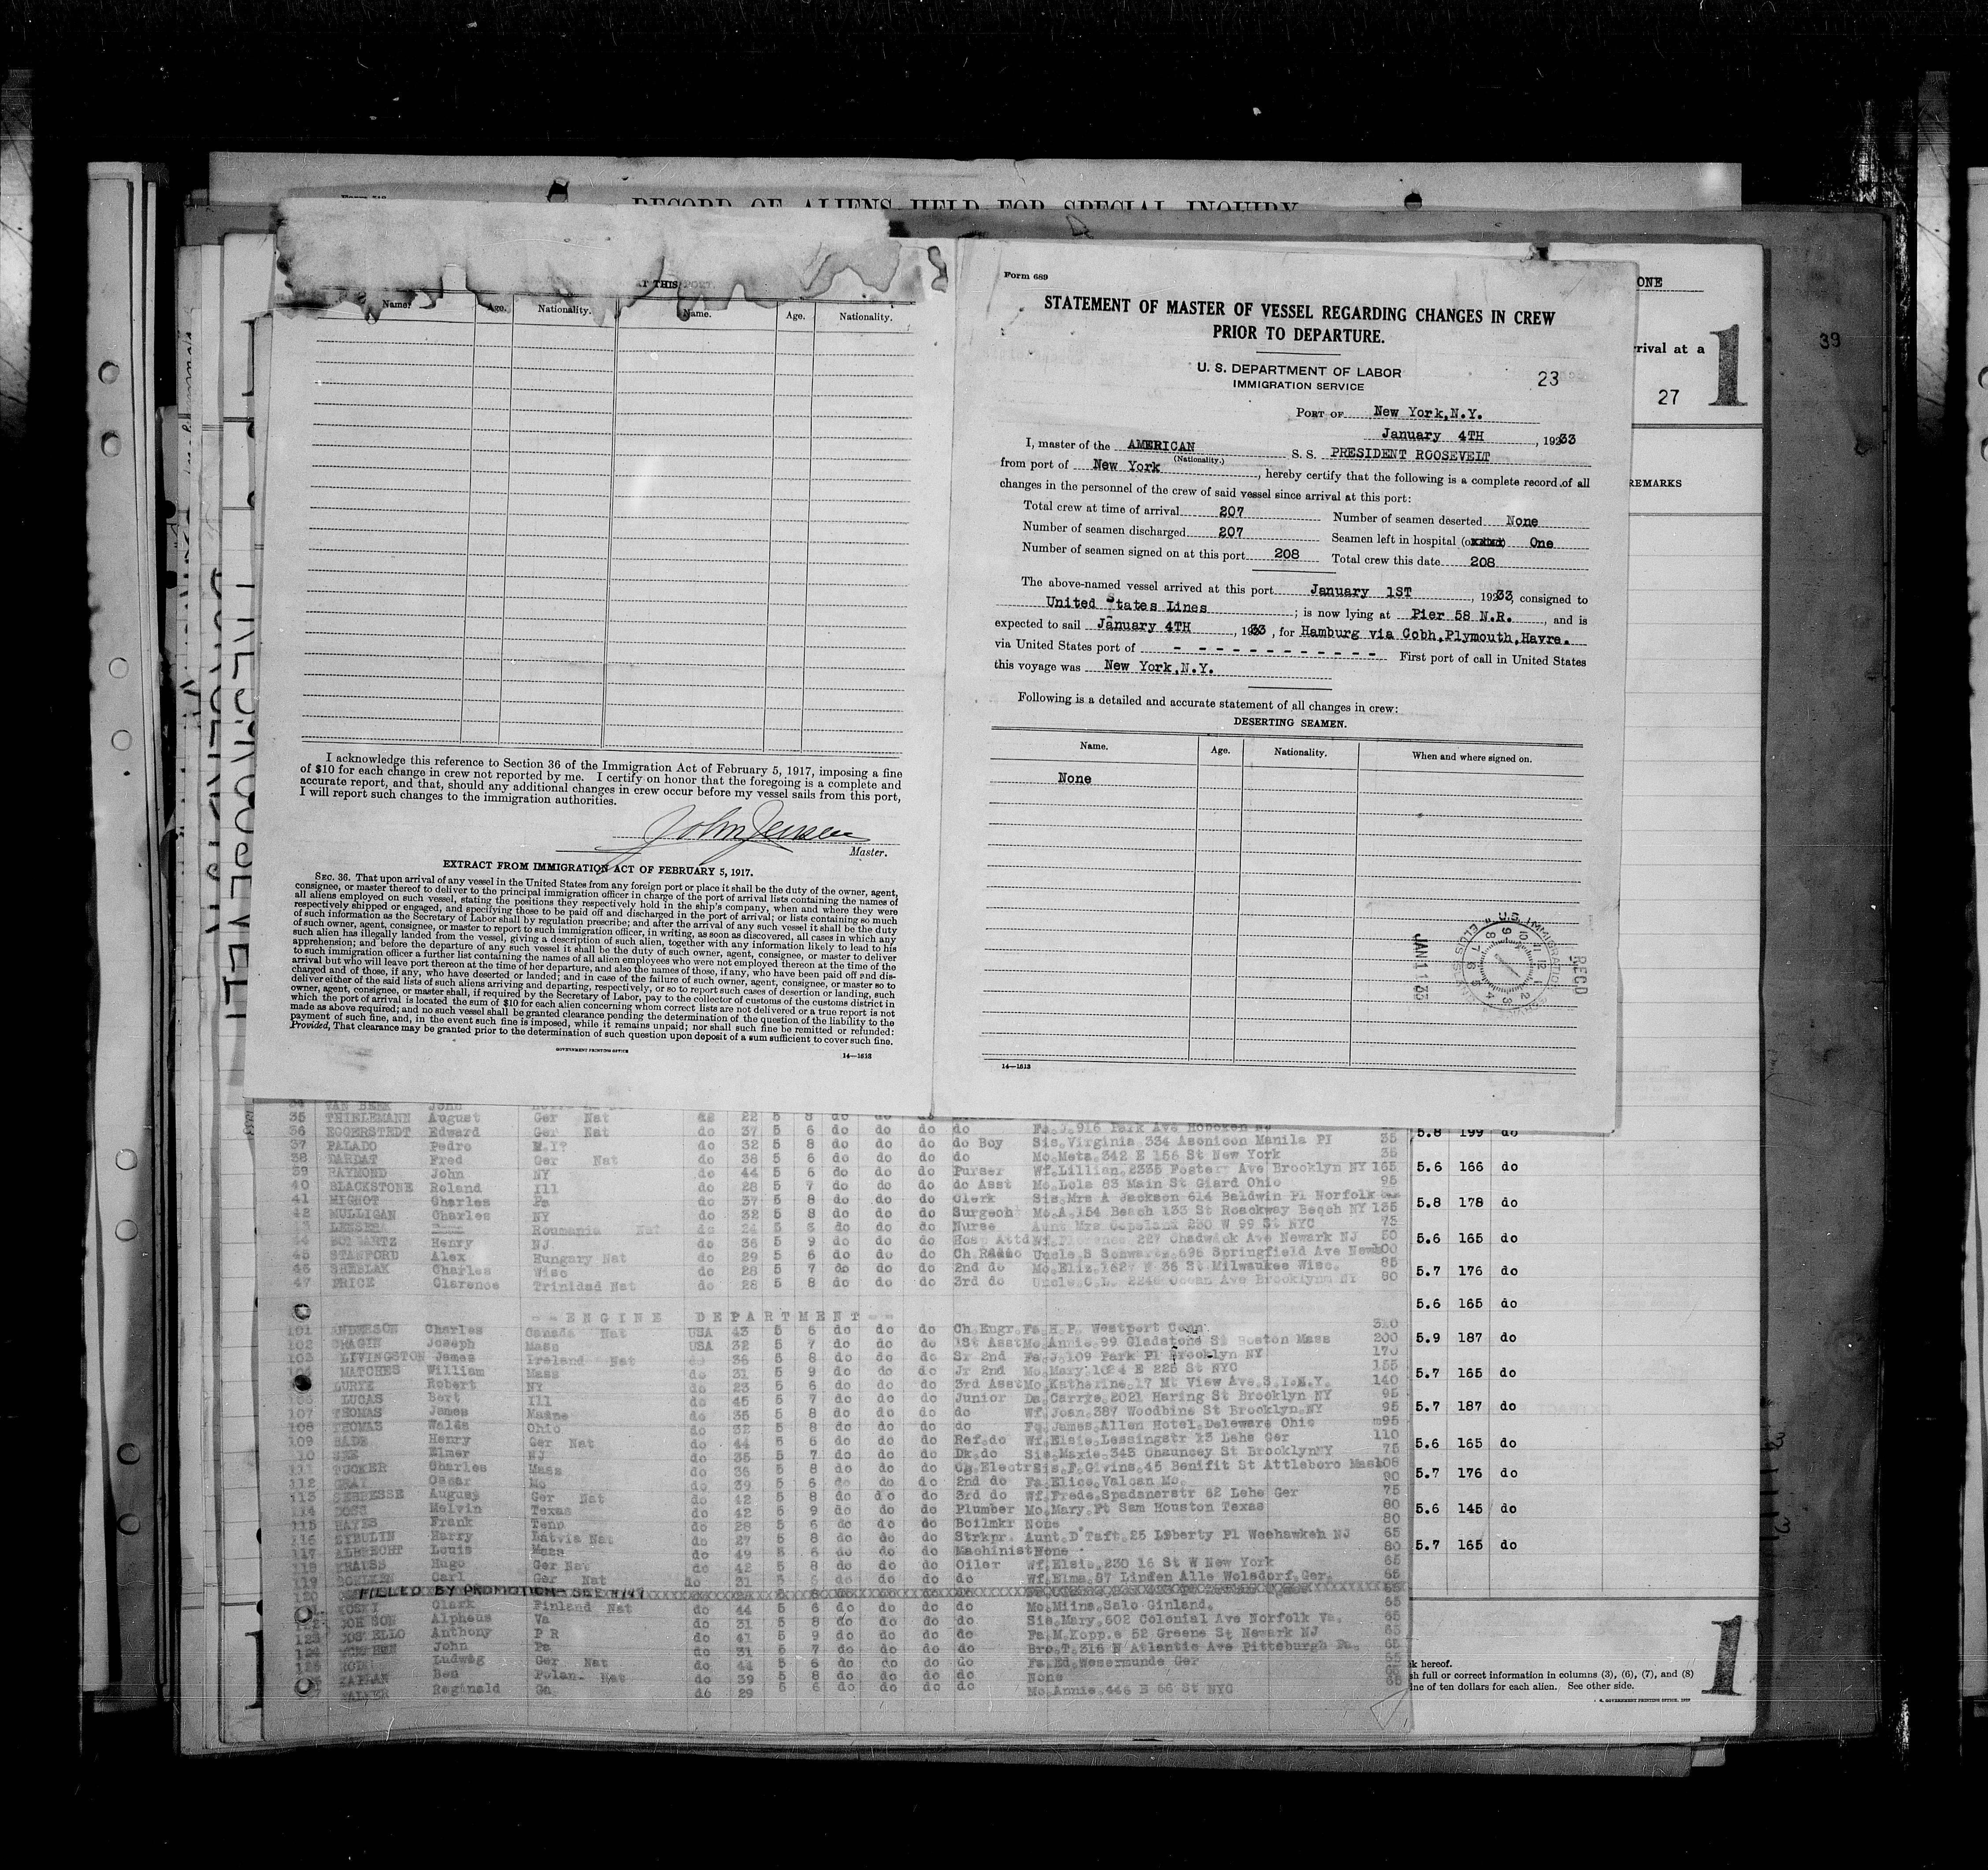 RECORD OF ALIENS HELD FOR SPECIAL INQUIRY
AT THIS PORT.
Name. Age. Nationality. Name. Age. Nationality.
I acknowledge this reference to Section 36 of the Immigration Act of February 5, 1917, imposing a fine
of $10 for each change in crew not reported by me. I certify on honor that the foregoing is a complete and
accurate report, and that, should any additional changes in crew occur before my vessel sails from this port,
I will report such changes to the immigration authorities.
John Jensen
Master.
EXTRACT FROM IMMIGRATION ACT OF FEBRUARY 5, 1917.
SEC. 36. That upon arrival of any vessel in the United States from any foreign port or place it shall be the duty of the owner, agent,
consignee, or master thereof to deliver to the principal immigration officer in charge of the port of arrival lists containing the names of
all aliens employed on such vessel, stating the positions they respectively hold in the ship's company, when and where they were
respectively shipped or engaged, and specifying those to be paid off and discharged in the port of arrival; or lists containing so much
of such information as the Secretary of Labor shall by regulation prescribe; and after the arrival of any such vessel it shall be the duty
of such owner, agent, consignee, or master to report to such immigration officer, in writing, as soon as discovered, all cases in which any
such alien has illegally landed from the vessel, giving a description of such alien, together with any information likely to lead to his
apprehension; and before the departure of any such vessel it shall be the duty of such owner, agent, consignee, or master to deliver
to such immigration officer a further list containing the names of all alien employees who were not employed thereon at the time of the
arrival but who will leave port thereon at the time of her departure, and also the names of those, if any, who have been paid off and dis-
charged and of those, if any, who have deserted or landed; and in case of the failure of such owner, agent, consignee, or master so to
deliver either of the said lists of such aliens arriving and departing, respectively, or so to report such cases of desertion or landing, such
owner, agent, consignee, or master shall, if required by the Secretary of Labor, pay to the collector of customs of the customs district in
which the port of arrival is located the sum of $10 for each alien concerning whom correct lists are not delivered or a true report is not
made as above required; and no such vessel shall be granted clearance pending the determination of the question of the liability to the
payment of such fine, and, in the event such fine is imposed, while it remains unpaid; nor shall such fine be remitted or refunded:
Provided, That clearance may be granted prior to the determination of such question upon deposit of a sum sufficient to cover such fine.
GOVERNMENT PRINTING OFFICE 14—1513
Form 689
STATEMENT OF MASTER OF VESSEL REGARDING CHANGES IN CREW
PRIOR TO DEPARTURE.
U. S. DEPARTMENT OF LABOR
IMMIGRATION SERVICE
23
PORT OF New York,N.Y.
January 4TH, 1933
I, master of the AMERICAN S. S. PRESIDENT ROOSEVELT
(Nationality.)
from port of New York, hereby certify that the following is a complete record of all
changes in the personnel of the crew of said vessel since arrival at this port:
Total crew at time of arrival 207 Number of seamen deserted None
Number of seamen discharged 207 Seamen left in hospital One
Number of seamen signed on at this port 208 Total crew this date 208
The above-named vessel arrived at this port January 1ST, 1933, consigned to
United States Lines; is now lying at Pier 58 N.R., and is
expected to sail January 4TH, 1933, for Hamburg via Cobh,Plymouth,Havre.
via United States port of - - - - - - - - - - - - First port of call in United States
this voyage was New York,N.Y.
Following is a detailed and accurate statement of all changes in crew:
DESERTING SEAMEN.
Name. Age. Nationality. When and where signed on.
None
JAN 11 33
U.S. IMMIGRATION
ELLIS
REC'D
14—1513
ONE
rrival at a
1
27
39
REMARKS
35 THIELEMANN August Ger Nat do 22 5 8 do do do
36 EGGERSTEDT Edward Ger Nat do 37 5 6 do do do do 916 Park Ave Hoboken
37 PALADO Pedro N.Y? do 32 5 8 do do do do Boy Sis.Virginia 334 Asonicon Manila PI 35
38 DARDAT Fred Ger Nat do 38 5 6 do do do do Mo.Meta.342 E 156 St New York 35
39 RAYMOND John NY do 44 5 6 do do do Purser Wf.Lillian.2335 Foster Ave Brooklyn NY 165
40 BLACKSTONE Roland Ill do 28 5 7 do do do do Asst Mo.Lola 83 Main St Giard Ohio 95
41 MIGNOT Charles Pa do 37 5 8 do do do Clerk Sis.Mrs A Jackson 614 Baldwin Pl Norfolk
42 MULLIGAN Charles NY do 32 5 8 do do do Surgeon Mo.A.154 Beach 133 St Roackway Beach NY 135
Roumania Nat do 24 5 6 do do do Nurse Aunt Mrs Copeland 230 W 99 St NYC 75
Henry NJ do 36 5 9 do do do Hosp Attd Wf.Florence 227 Chadwick Ave Newark NJ 50
45 STANFORD Alex Hungary Nat do 29 5 6 do do do Ch Radio Uncle.S Schwartz.696 Springfield Ave
46 SHEBLAK Charles Wisc do 28 5 7 do do do 2nd do Mo.Eliz.1627 N 36 St Milwaukee Wisc. 85
47 PRICE Clarence Trinidad Nat do 28 5 8 do do do 3rd do Uncle.C.L. 2246 Ocean Ave Brooklyn NY 80
--ENGINE DEPARTMENT--
101 ANDERSON Charles Canada Nat USA 43 5 6 do do do Ch Engr. Fa.H.P. Westport Conn. 310
102 CRAGIN Joseph Mass USA 32 5 7 do do do 1St Asst Mo.Annie.99 Gladstone St Boston Mass 200
103 LIVINGSTON James Ireland Nat do 36 5 8 do do do Sr 2nd Fa.J.109 Park Pl Brooklyn NY 170
MATCHES William Mass do 31 5 9 do do do Jr 2nd Mo.Mary.1024 E 225 St NYC 155
LURYE Robert NY do 23 5 6 do do do 3rd Asst Mo.Katherine.17 Mt View Ave.S.I.N.Y. 140
LUCAS Bert Ill do 45 5 7 do do do Junior Da.Carrye.2021 Haring St Brooklyn NY 95
107 THOMAS James Maine do 35 5 8 do do do do Wf.Joan.387 Woodbine St Brooklyn.NY 95
108 THOMAS Waldo Ohio do 32 5 8 do do do do Fa.James.Allen Hotel.Deleware Ohio 95
109 BADE Henry Ger Nat do 44 5 6 do do do Ref.do Wf.Elsie.Lessingstr 13 Lehe Ger 110
110 Elmer NJ do 35 5 7 do do do Dk.do Sis.Maxie.343 Chauncey St BrooklynNY 75
111 TUCKER Charles Mass do 36 5 8 do do do Ch.Electr Sis.F.Givins.45 Benifit St Attleboro Mass 108
112 GRAY Oscar Mo do 39 5 6 do do do 2nd do Fa.Elice.Valcan Mo. 90
113 August Ger Nat do 42 5 8 do do do 3rd do Wf.Frede.Spadanerstr 52 Lehe Ger 75
114 Melvin Texas do 42 5 9 do do do Plumber Mo.Mary.Ft Sam Houston Texas 80
115 HAYES Frank Tenn do 28 5 6 do do do Boilmkr None 80
116 ZYBULIN Harry Latvia Nat do 27 5 8 do do do Strkpr. Aunt.D Taft.25 Liberty Pl Weehawken NJ 65
117 ALBRECHT Louis Mass do 49 5 6 do do do Machinist None 80
118 KRAUSS Hugo Ger Nat do 42 5 8 do do do Oiler Wf.Elsie.230 16 St W New York 65
119 Carl Ger Nat do 31 do do do do Wf.Elma.87 Linden Alle Wolsdorf.Ger. 65
120 FILLED BY PROMOTION - SEE #147
KOSKY Clark Finland Nat do 44 5 6 do do do do Mo.Miina.Salo Ginland. 65
JOHNSON Alpheus Va do 31 5 8 do do do do Sis.Mary.602 Colonial Ave Norfolk Va. 65
123 COSTELLO Anthony P R do 41 5 9 do do do do Fa.M.Kopp.e 52 Greene St Newark NJ 65
124 John Pa do 31 5 7 do do do do Bro.T.316 N Atlantic Ave Pittsburgh Pa. 65
Ludwig Ger Nat do 44 5 6 do do do do Fa.Ed.Wesermunde Ger 65
KAPLAN Ben Polan- Nat do 39 5 8 do do do do None
WALKER Reginald Ga do 29 5 6 do do do do Mo.Annie.446 E 66 St NYC 65
5.8 199 do
5.6 166 do
5.8 178 do
5.6 165 do
5.7 176 do
5.6 165 do
5.9 187 do
5.7 165 do
5.7 187 do
5.6 165 do
5.7 176 do
5.6 145 do
5.7 165 do
k hereof.
sh full or correct information in columns (3), (6), (7), and (8)
ine of ten dollars for each alien. See other side.
1